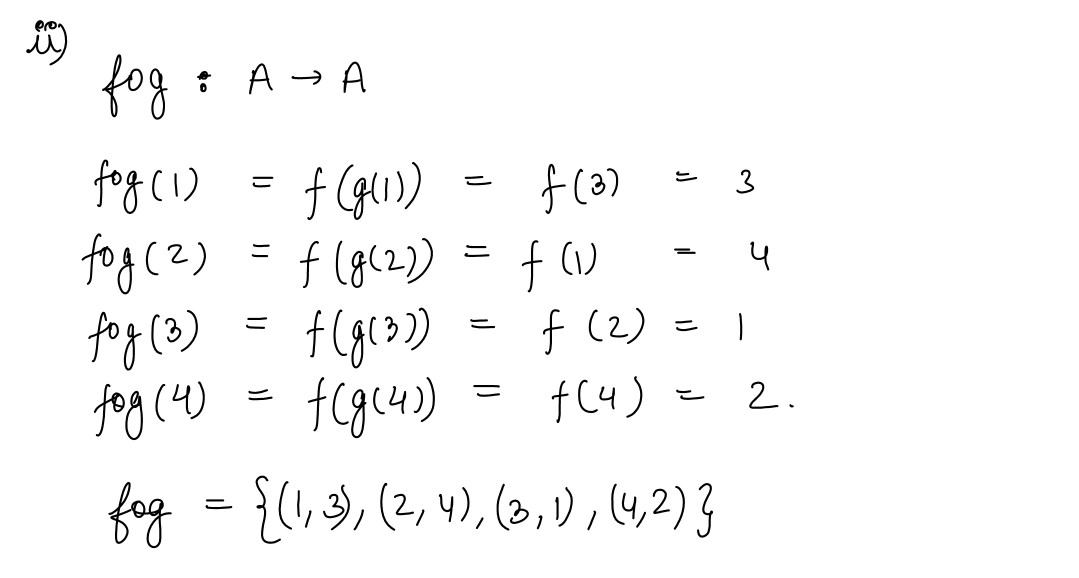 ii)
fog : A → A
fog(1) = f(g(1)) = f(3) = 3
fog(2) = f(g(2)) = f(1) = 4
fog(3) = f(g(3)) = f(2) = 1
fog(4) = f(g(4)) = f(4) = 2.
fog = {(1,3), (2,4), (3,1), (4,2)}